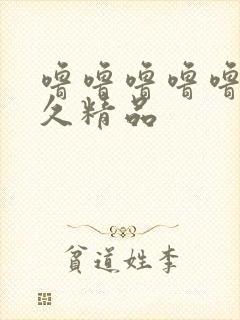 噜噜噜噜噜
久精品
贫道姓李